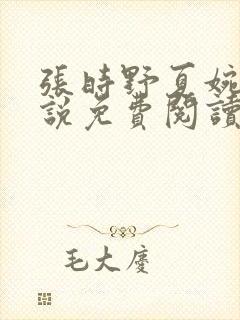 張時野夏婉
說免費閱讀
毛大慶